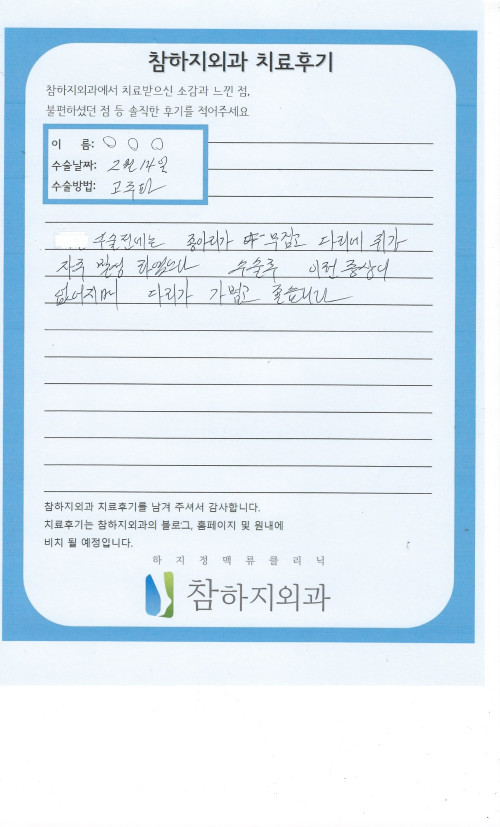 참하지외과 치료후기
참하지외과에서 치료받으신 소감과 느낀 점,
불편하셨던 점 등 솔직한 후기를 적어주세요
이 름: ○ ○ ○
수술날짜: 2월 14일
수술방법: 고주파
수술전에는 종아리가 무겁고 다리에 쥐가
자주 발생 하였으나 수술후 이런 증상이
없어지며 다리가 가볍고 좋습니다
참하지외과 치료후기를 남겨 주셔서 감사합니다.
치료후기는 참하지외과의 블로그, 홈페이지 및 원내에
비치 될 예정입니다.
하지정맥류클리닉
참하지외과